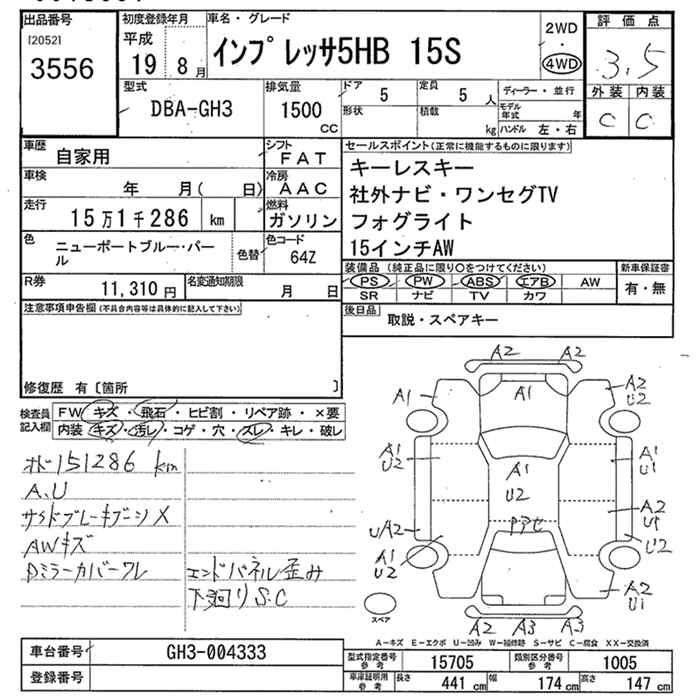 出品番号
[2052]
3556
初度登録年月
平成
19年 8月
車名・グレード
インプレッサ5HB 15S
2WD
・
4WD
評価点
3.5
外装 内装
C C
型式
DBA-GH3
排気量
1500
cc
ドア 5
形状
定員 5 人
積載 kg
ディーラー・並行
モデル年式 年
ハンドル 左・右
車歴
自家用
シフト
FAT
車検
年 月( 日)
冷房
AAC
走行
15万1千286 km
燃料
ガソリン
色
ニューポートブルー・パール
色替
色コード
64Z
R券
11,310 円
名変通知期限
月 日
セールスポイント(正常に機能するものに限ります)
キーレスキー
社外ナビ・ワンセグTV
フォグライト
15インチAW
装備品(純正品に限り○をつけてください)
PS PW ABS エアB AW
SR ナビ TV カワ
新車保証書
有・無
後日品
取説・スペアキー
注意事項申告欄(不具合内容等は具体的に記入して下さい)
修復歴 有〔箇所 〕
検査員記入欄
FW キズ・飛石・ヒビ割・リペア跡・×要
内装 キズ・汚レ・コゲ・穴・スレ・キレ・破レ
オド151286 km
A、U
サイドブレーキブーツ×
AWキズ
Dミラーカバーワレ
エンドパネル歪み
下廻りS.C
A2 A2
A1 A1 A2
U2
A1 A1 A1
U2 U2 U1
A2
U1
UA2 Pアセ U2
A1
U2
A2
U1
A2 A3 A3
スペア
A-キズ E-エクボ U-凹み W-補修跡 S-サビ C-腐食 XX-交換済
車台番号
GH3-004333
登録番号
型式指定番号
参考
15705
類別区分番号
参考
1005
車庫証明用
参考
長さ 441 cm
幅 174 cm
高さ 147 cm